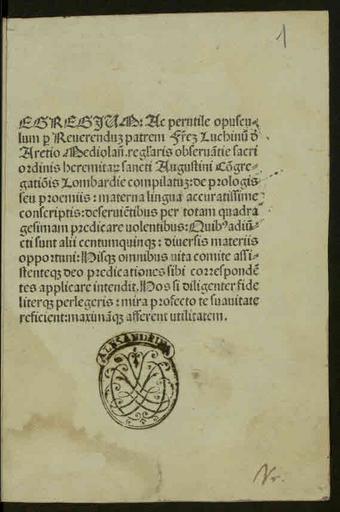 1
EGREGIUM: Ac perutile opuscu⸗
lum ꝑ Reuerenduȝ patrem Frēȝ Luchinū ď
Aretio Mediolañ. reglaris obseruātie sacri
ordinis heremitaꝝ sancti Augustini Cōgre
gatiōis Lombardie compilatuȝ: de prologis
seu proemiis: materna lingua accuratissime
conscriptis: deseruiētibus per totam quadra
gesimam predicare uolentibus: Quibꝰ adiū⸗
cti sunt alii centumquinqꝫ: diuersis materiis
opportuni: Hisqꝫ omnibus uita comite assi⸗
stenteqꝫ deo predicationes sibi correspondē
tes applicare intendit. Hos si diligenter fide
literqꝫ perlegeris: mira profecto te suauitate
reficient: maximāqꝫ afferent utilitatem.
ALEXANDRINA